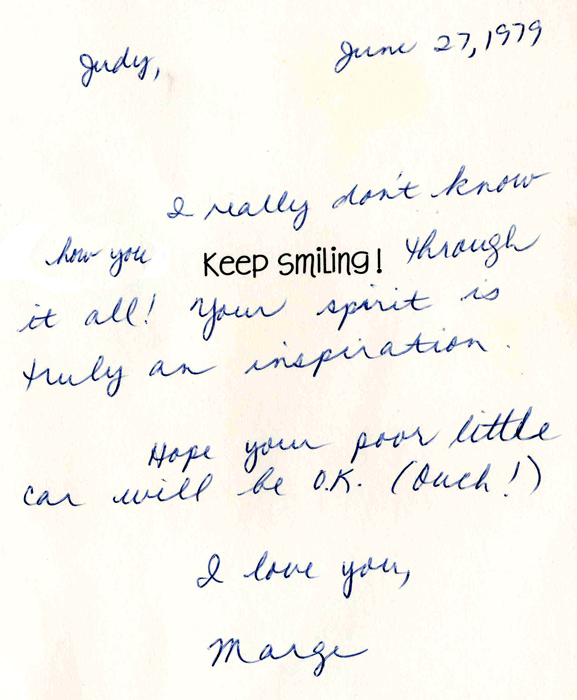 Judy,
June 27, 1979
I really don't know
how you Keep smiling! through
it all! Your spirit is
truly an inspiration.
Hope your poor little
car will be O.K. (Ouch!)
I love you,
Marge